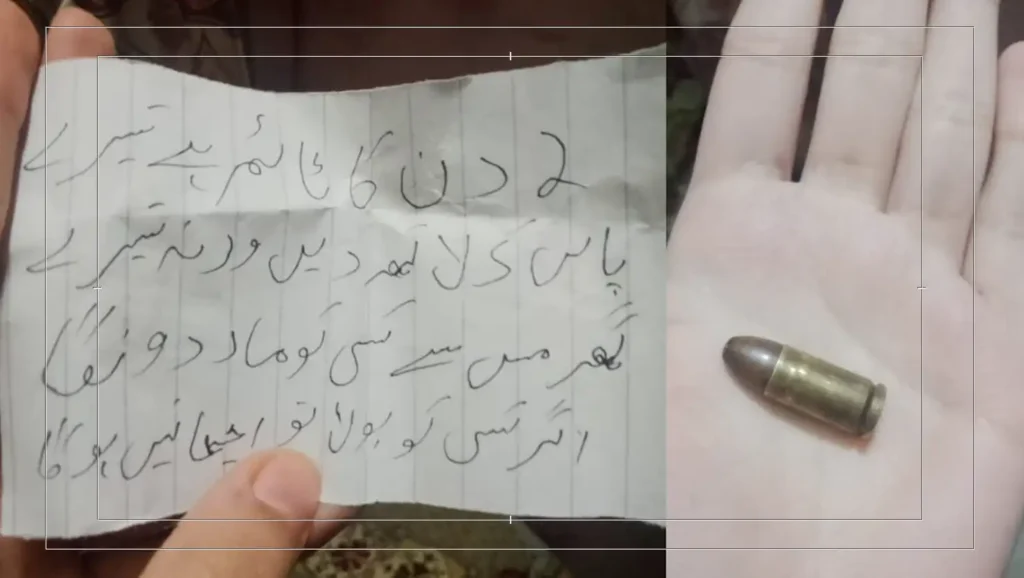 2 دن کا ٹائم ہے تیرے
پاس 5 لاکھ دیں ورنہ تیرے
گھر میں سے کسی کو مار دونگا
اگر کسی کو بولا تو اچھا نہیں ہوگا